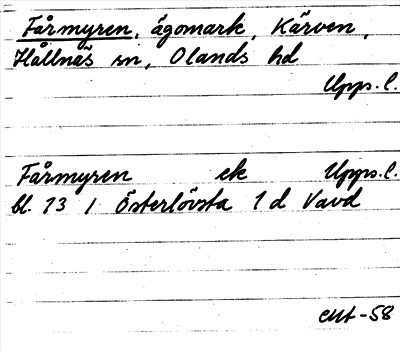 Fårmyren, ägomark, Kärven,
Hållnäs sn, Olands hd
Upps. l.
Fårmyren ek Upps. l.
bl. 73 / Österlövsta 1 d Vavd
-58